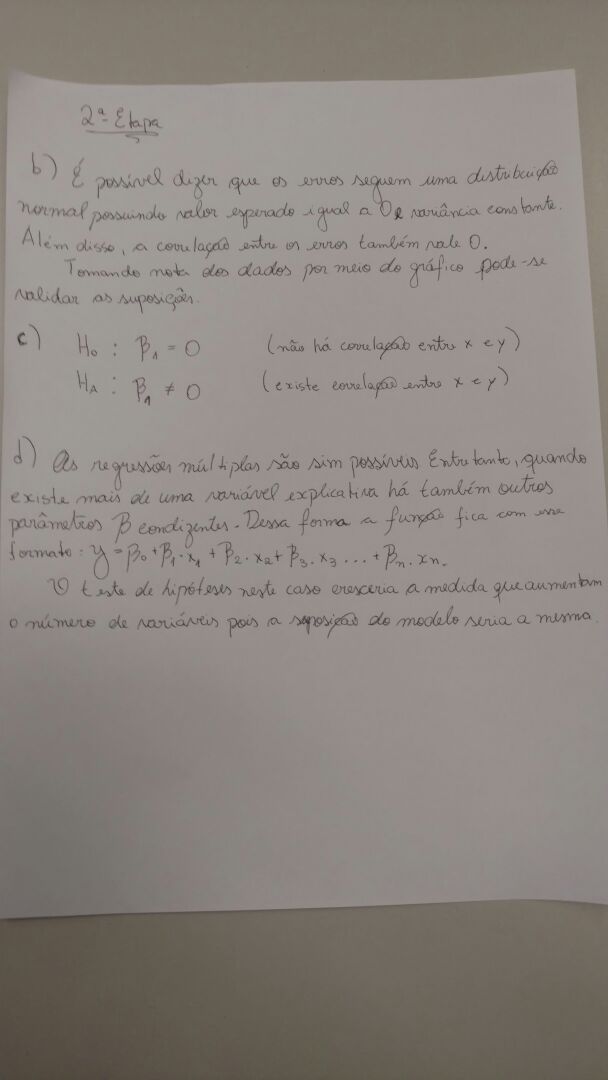 2ª Etapa
b) É possível dizer que os erros seguem uma distribuição
normal possuindo valor esperado igual a 0 e variância constante.
Além disso, a correlação entre os erros também vale 0.
Tomando nota dos dados por meio do gráfico pode-se
validar as suposições.
c) H₀ : β₁ = 0 (não há correlação entre x e y)
Hₐ : β₁ ≠ 0 (existe correlação entre x e y)
d) As regressões múltiplas são sim possíveis Entretanto, quando
existe mais de uma variável explicativa há também outros
parâmetros β condizentes. Dessa forma a função fica com esse
formato: y = β₀ + β₁ · x₁ + β₂ · x₂ + β₃ · x₃ ... + βn · xn.
O teste de hipóteses neste caso cresceria a medida que aumentam
o número de variáveis pois a suposição do modelo seria a mesma.